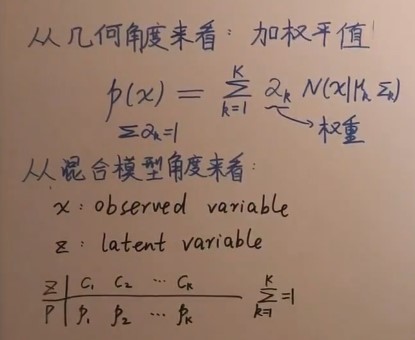 从几何角度来看：加权平值
p(x) = \sum_{k=1}^{K} α_k N(x|μ_k Σ_k)
Σα_k=1 权重
从混合模型角度来看：
x : observed variable
z : latent variable
z | C_1 C_2 ⋯ C_k
P | p_1 p_2 ⋯ p_k \sum_{k=1}^{K} =1